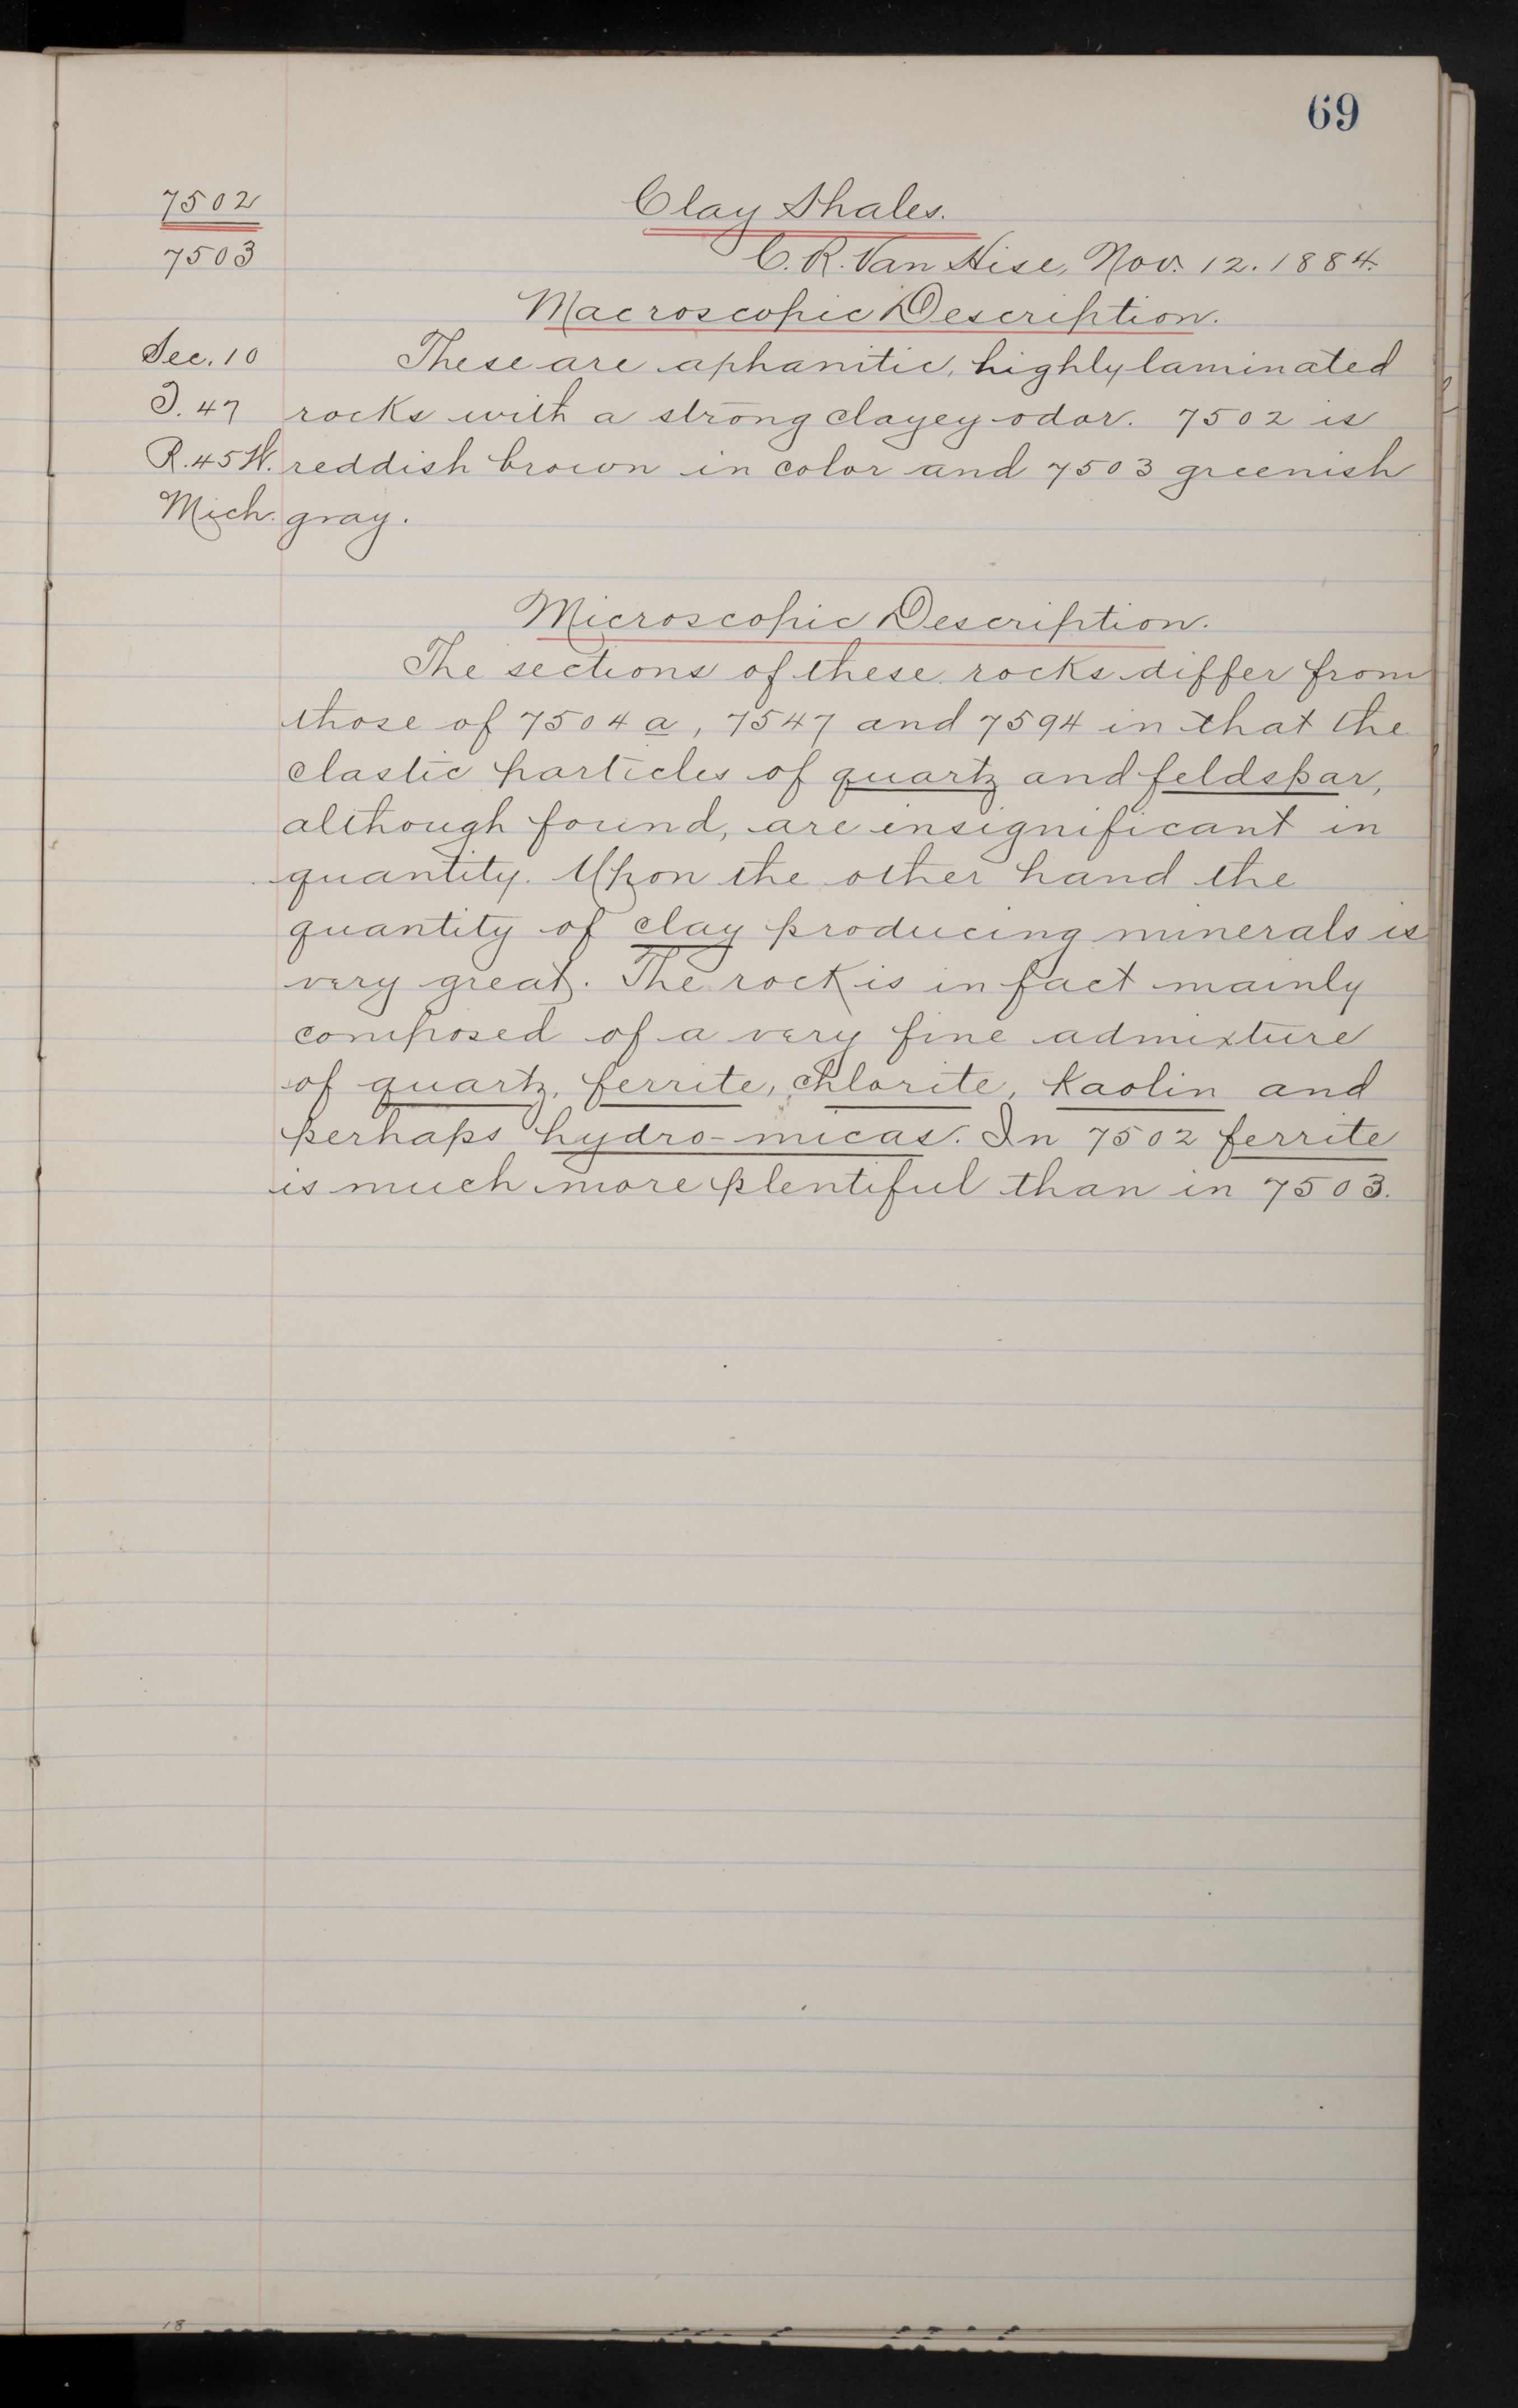 69
7502
Clay Shales.
7503
C. R. Van Hise, Nov. 12. 1884.
Macroscopic Description.
Sec. 10
These are aphanitic, highly laminated
T. 47
rocks with a strong clayey odor. 7502 is
R. 45 W.
reddish brown in color and 7503 greenish
Mich.
gray.
Microscopic Description.
The sections of these rocks differ from
those of 7504 a, 7547 and 7594 in that the
clastic particles of quartz and feldspar,
although found, are insignificant in
quantity. Upon the other hand the
quantity of clay producing minerals is
very great. The rock is in fact mainly
composed of a very fine admixture
of quartz, ferrite, chlorite, kaolin and
perhaps hydro-micas. In 7502 ferrite
is much more plentiful than in 7503.
18